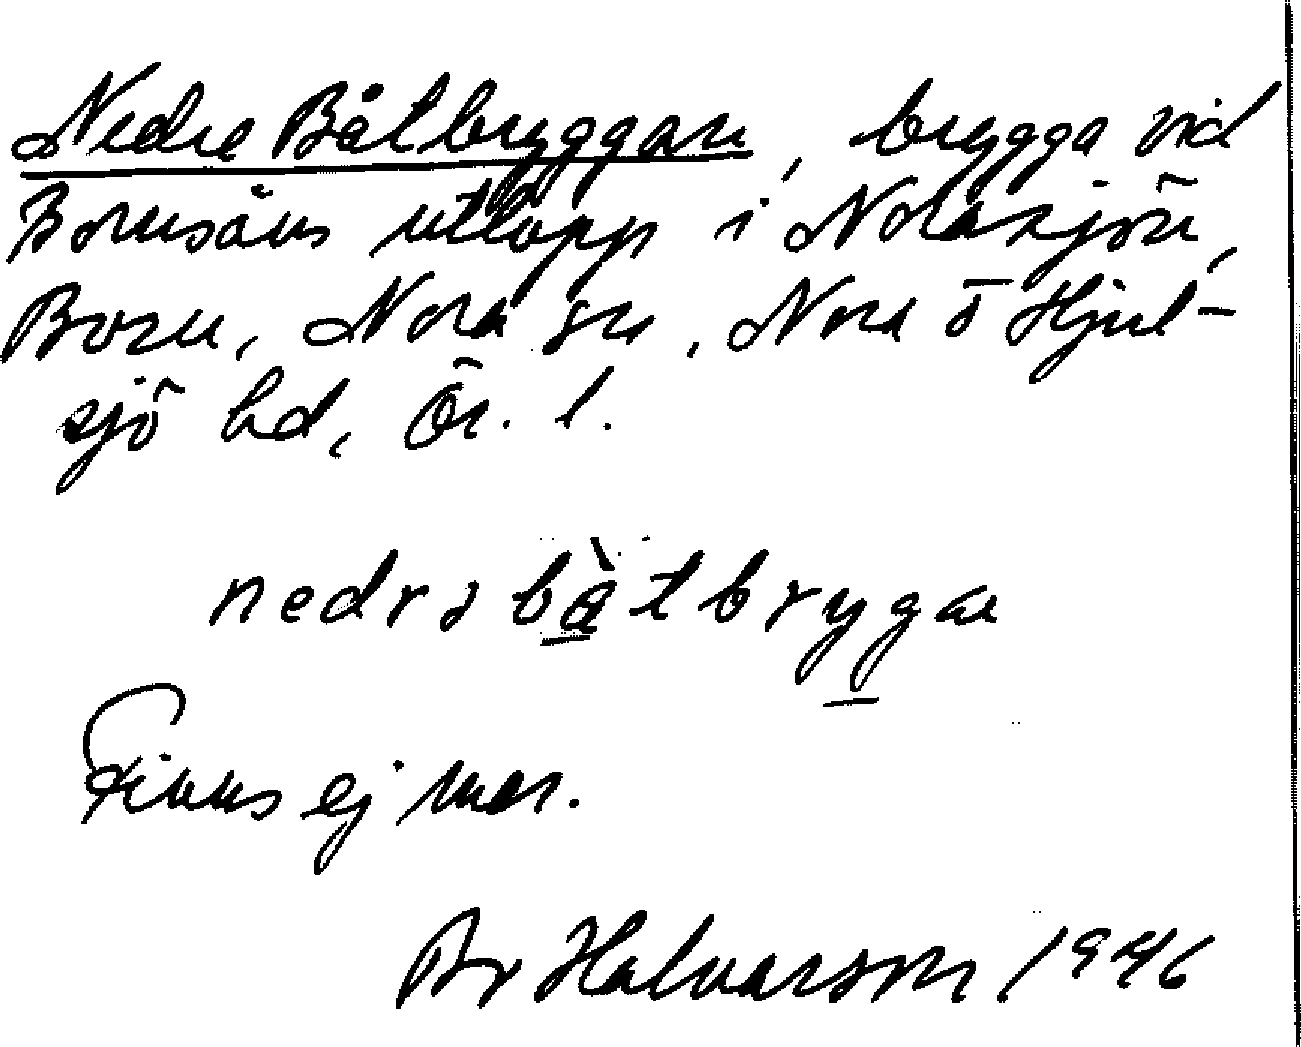 Nedre Båtbryggan, brygga vid
Bornsåns utlopp i Norasjön,
Born, Nora sn, Nora o Hjul-
sjö hd, Ör. l.
nedrə bàtbrygan
Finns ej mer.
Br Halvarson 1946